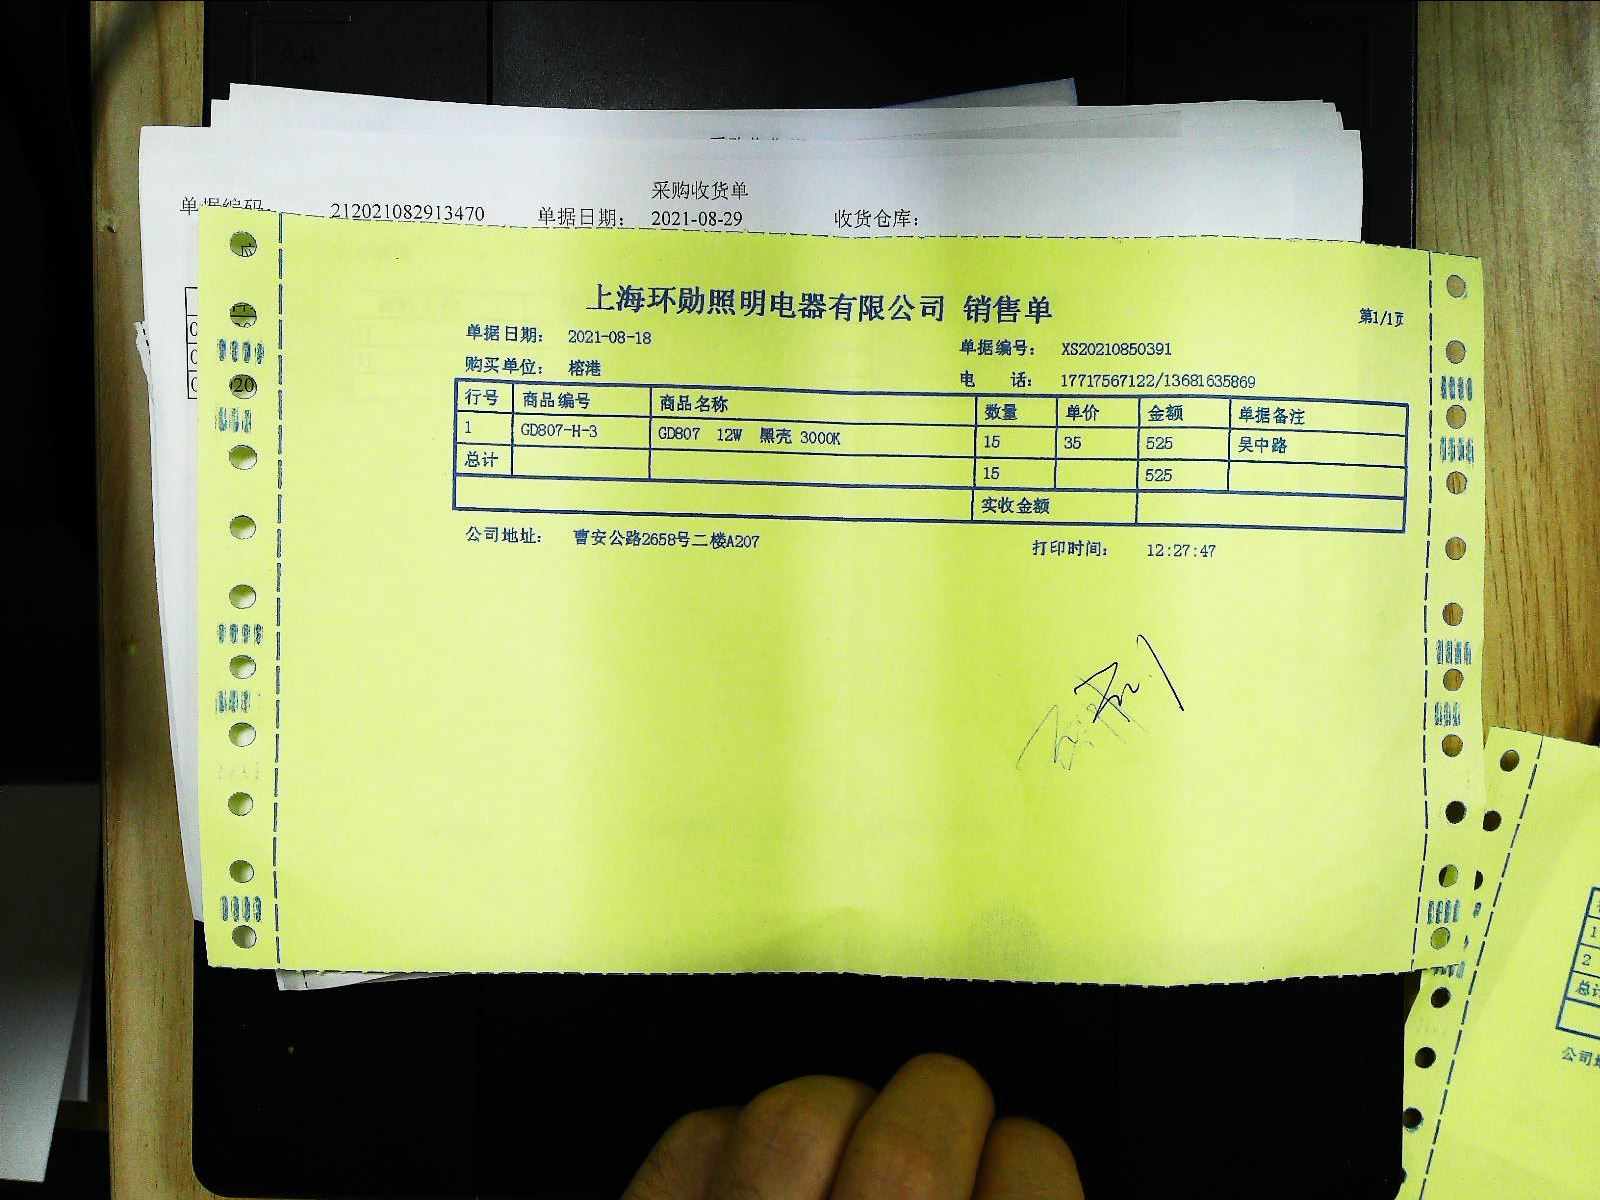 采购收货单
单据编码: 212021082913470 单据日期: 2021-08-29 收货仓库:
上海环勋照明电器有限公司 销售单
第1/1页
单据日期: 2021-08-18 单据编号: XS20210850391
购买单位: 榕港 电 话: 17717567122/13681635869
行号 商品编号 商品名称 数量 单价 金额 单据备注
1 GD807-H-3 GD807 12W 黑壳 3000K 15 35 525 吴中路
总计 15 525
实收金额
公司地址: 曹安公路2658号二楼A207 打印时间: 12:27:47
1
2
总计
公司地